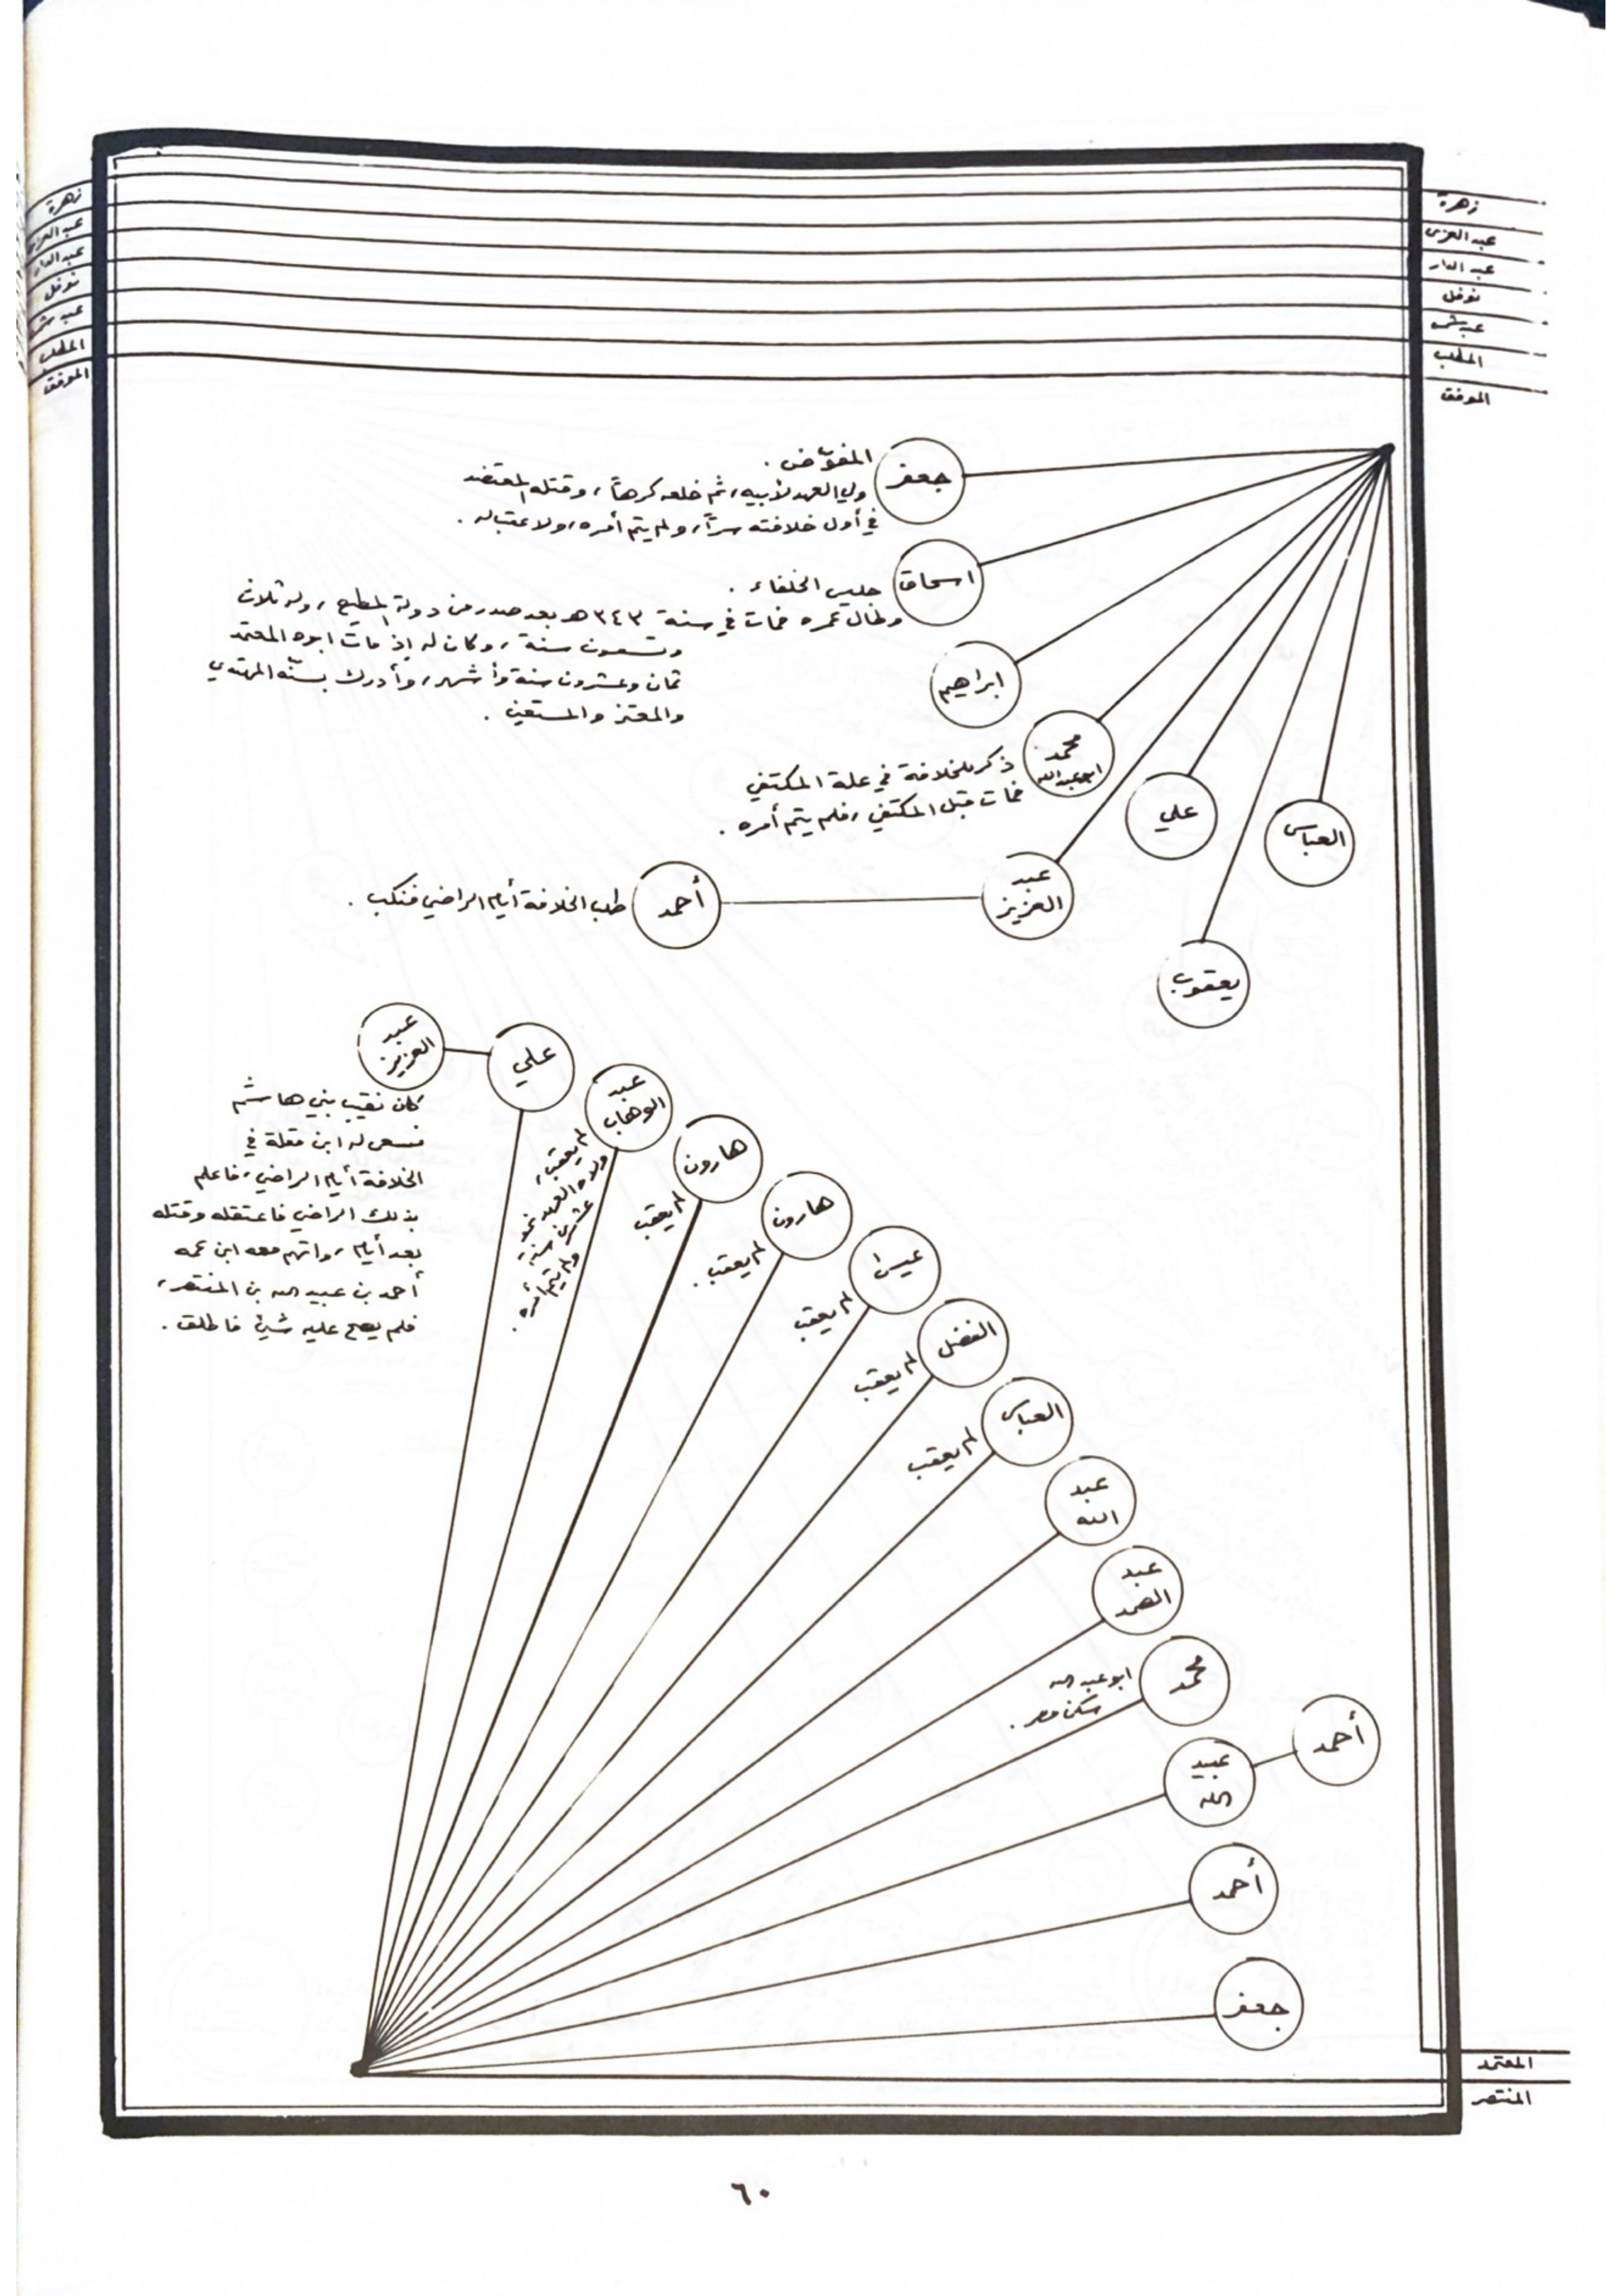 زهرة
عبد العزى
عبد الدار
نوفل
عبد شمس
المطلب
الموفق
زهرة
عبد العزى
عبد الدار
نوفل
عبد شمس
المطلب
الموفق
جعفر
المفوّض .
ولي العهد لأبيه، ثم خلعه كرهاً، وقتله المعتضد
في أول خلافته سراً، ولم يتم أمره، ولا عقب له .
اسحاق
جليس الخلفاء .
وطال عمره فمات في سنة ٣٤٣ هـ بعد صدر من دولة المطيع، وله ثلاث
وتسعون سنة، وكان له إذ مات ابوه المعتمد
ثمان وعشرون سنة وأشهر، وأدرك بسنّه المهتدي
والمعتز والمستعين .
ابراهيم
محمد
ابو عبد الله
ذكر للخلافة في علة المكتفي
فمات قبل المكتفي، فلم يتم أمره .
علي
العباس
عبد
العزيز
أحمد
طلب الخلافة أيام الراضي فنكب .
يعقوب
عبد
العزيز
كان نقيب بني هاشم
فسعى له ابن مقلة في
الخلافة أيام الراضي، فاعلم
بذلك الراضي فاعتقله وقتله
بعد أيام، واتهم معه ابن عمه
أحمد بن عبيد الله بن المنتصر،
فلم يصح عليه شيئ فاطلق .
علي
عبد
الوهاب
لم يعقب،
ولاه العهد نحو
عشرين سنة،
ولم يتم أمره .
هارون
لم يعقب
هارون
لم يعقب .
عيسى
لم يعقب
الفضل
لم يعقب
العباس
لم يعقب
عبد
الله
عبد
الصمد
محمد
ابو عبد الله
سكن مصر .
عبيد
الله
أحمد
أحمد
جعفر
المعتمد
المنتصر
٦٠